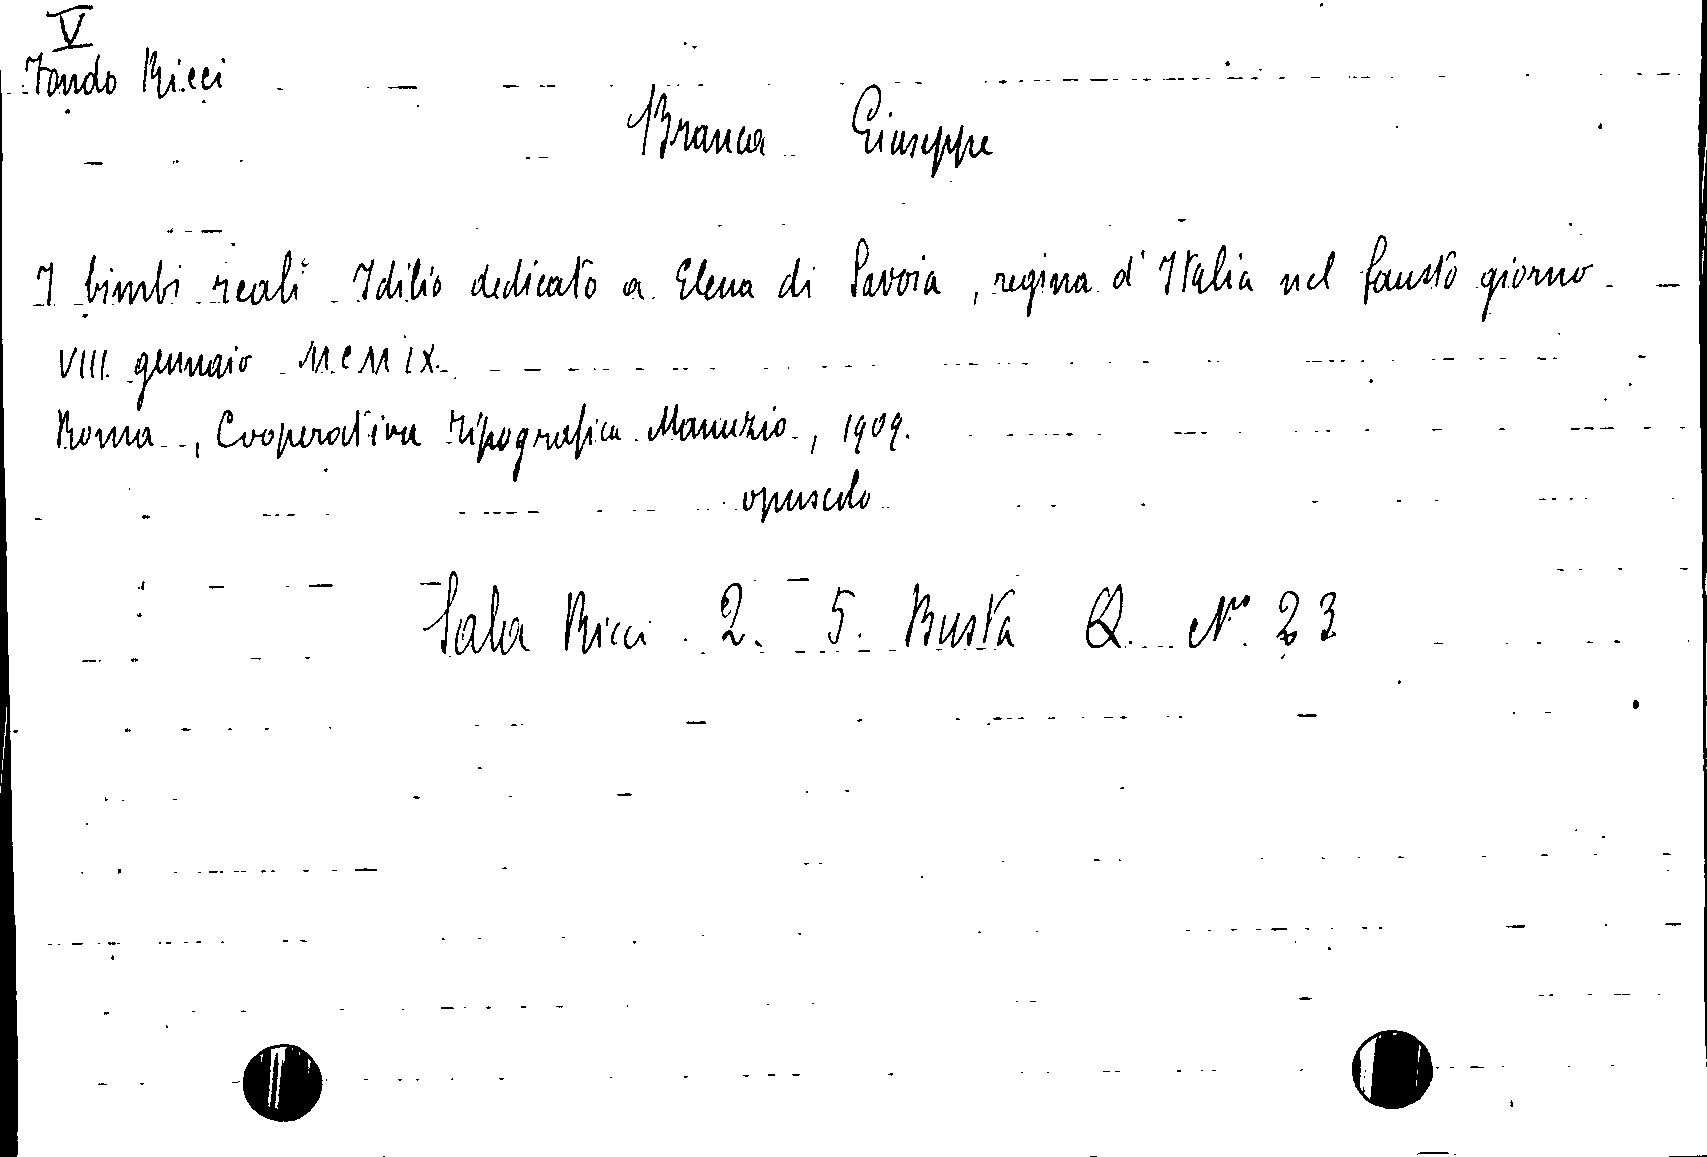 V
Fondo Ricci
Branca Giuseppe
I bimbi reali Idilio dedicato a Elena di Savoia, regina d'Italia nel fausto giorno
VIII gennaio MCMIX.
Roma, Cooperativa tipografica Manuzio, 1909.
opuscolo
Sala Ricci 2. 5. Busta Q. N° 23